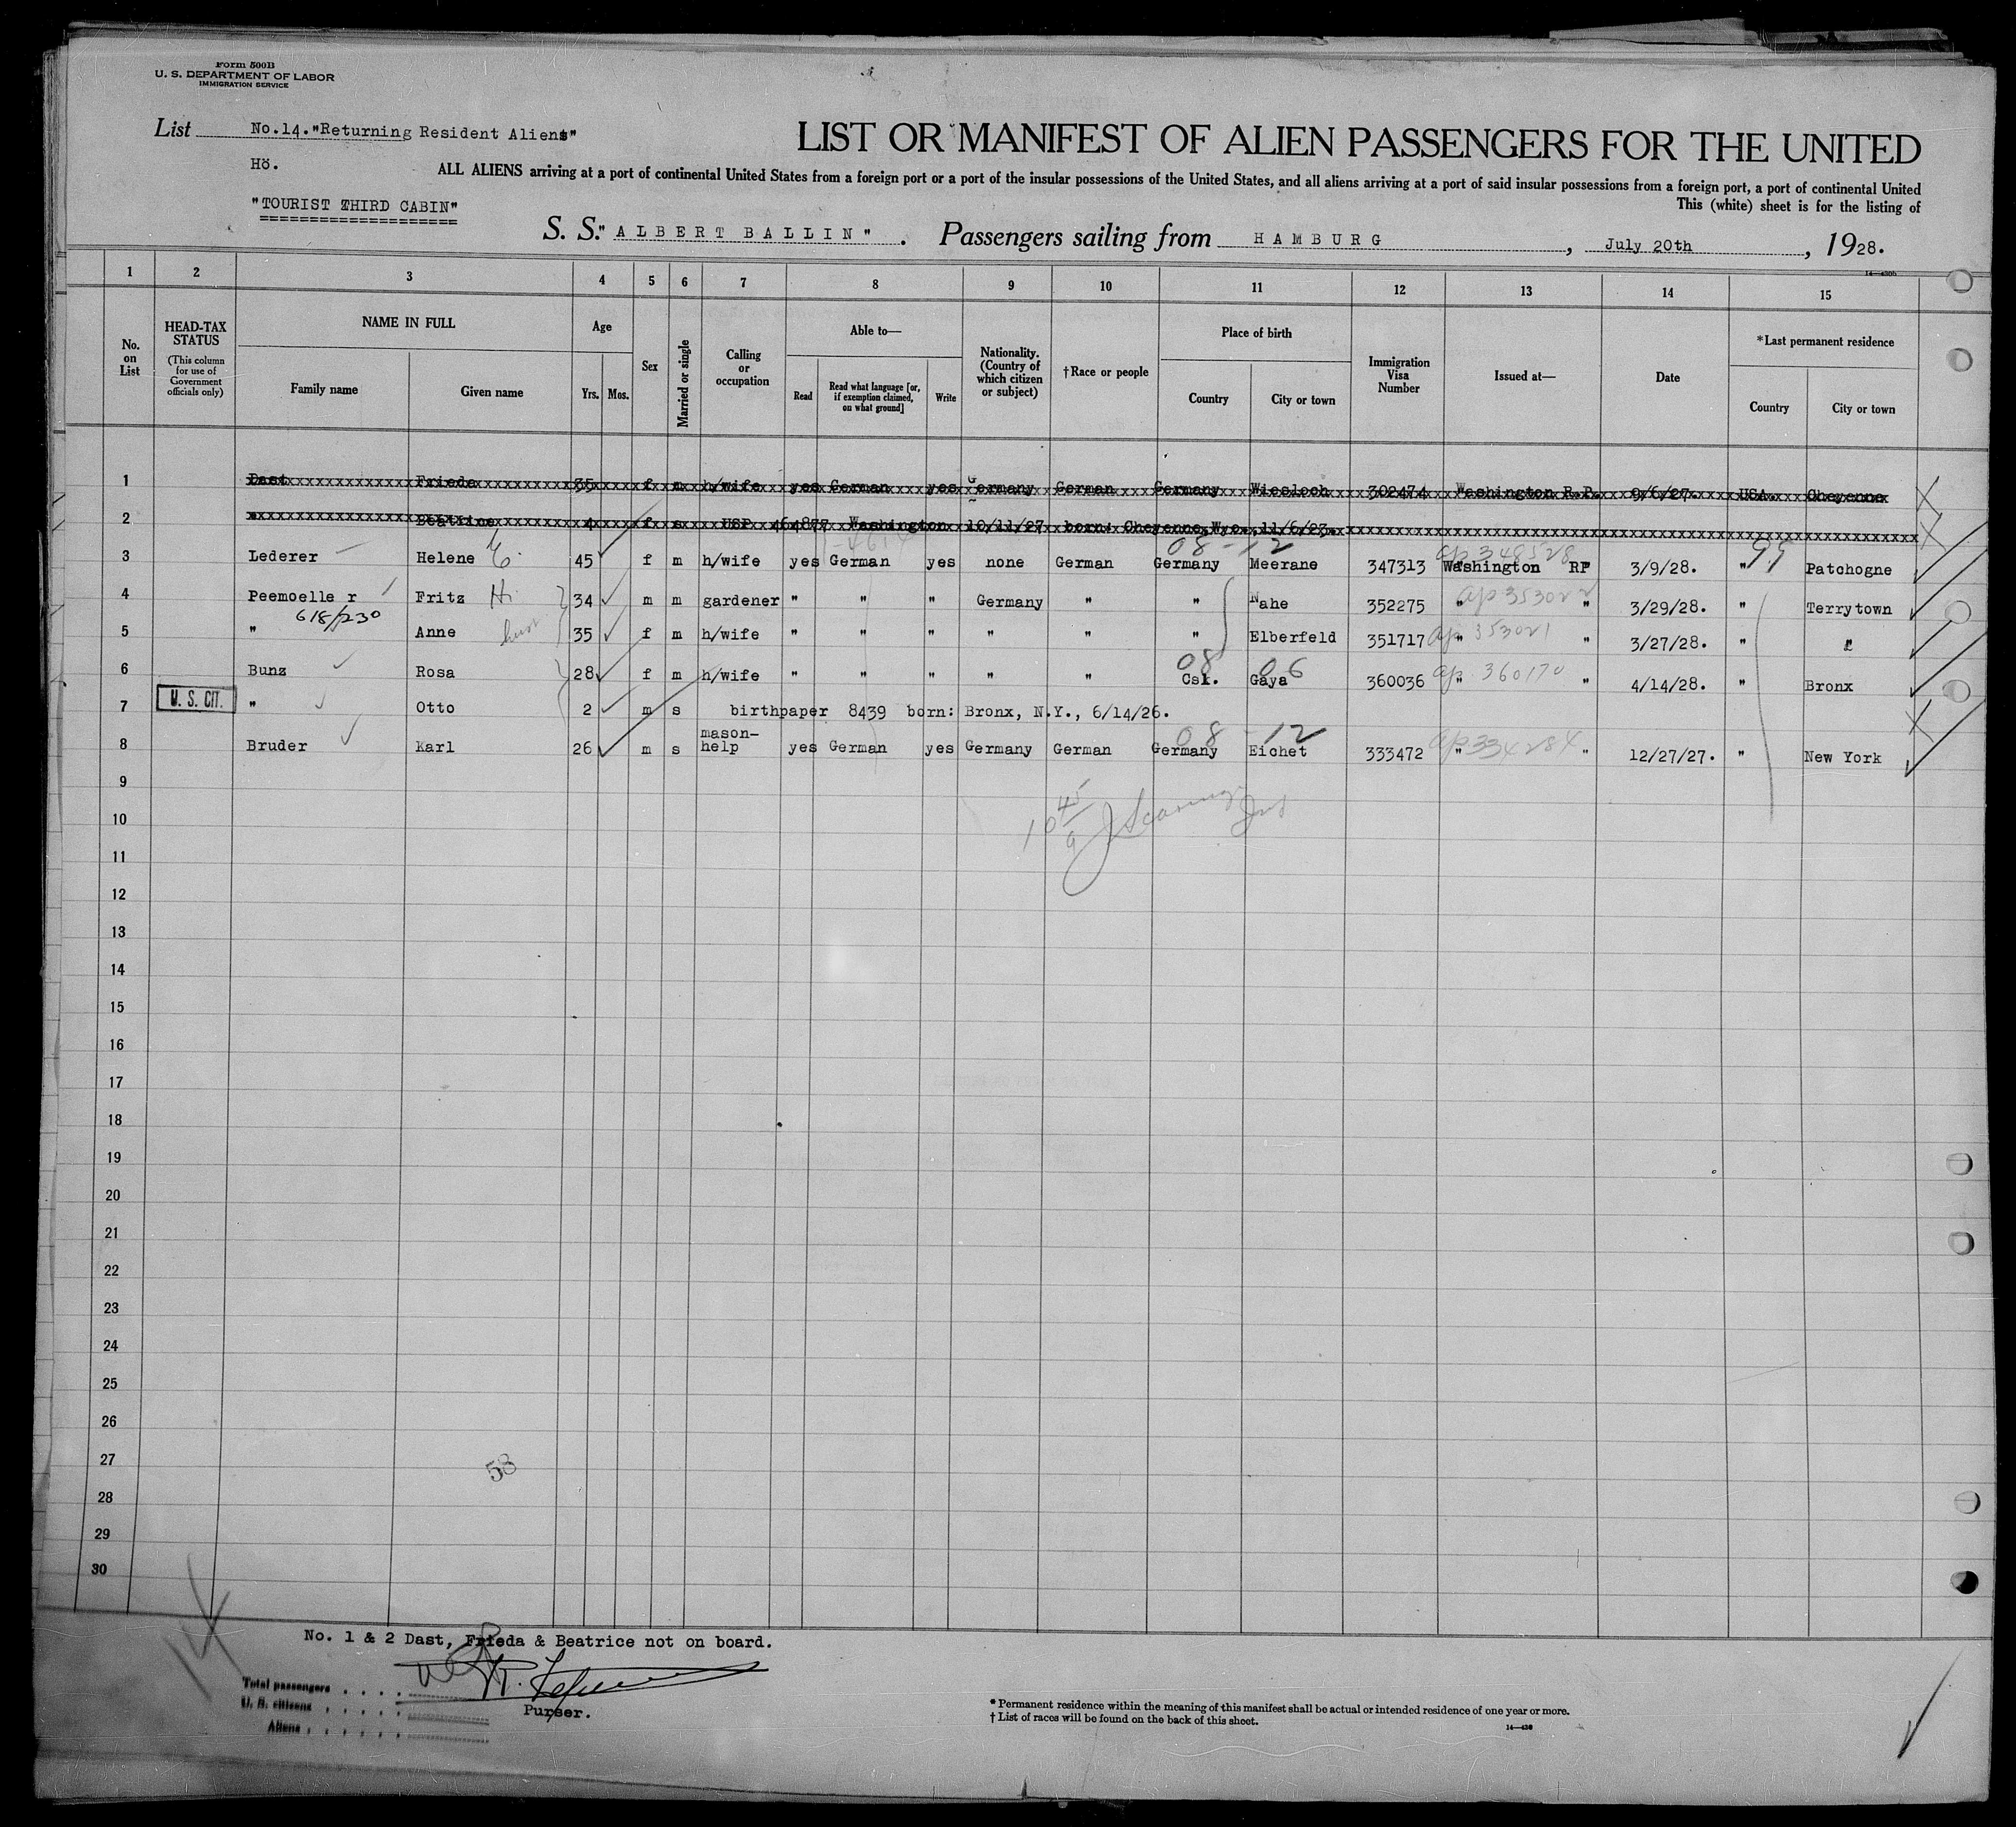 Form 500B
U. S. DEPARTMENT OF LABOR
IMMIGRATION SERVICE
List No.14."Returning Resident Aliens"
LIST OR MANIFEST OF ALIEN PASSENGERS FOR THE UNITED
Hö.
ALL ALIENS arriving at a port of continental United States from a foreign port or a port of the insular possessions of the United States, and all aliens arriving at a port of said insular possessions from a foreign port, a port of continental United
"TOURIST THIRD CABIN"
This (white) sheet is for the listing of
S. S." A L B E R T B A L L I N ". Passengers sailing from H A M B U R G , July 20th , 1928.
1 2 3 4 5 6 7 8 9 10 11 12 13 14 15
No. on List
HEAD-TAX STATUS (This column for use of Government officials only)
NAME IN FULL
Family name Given name
Age
Yrs. Mos.
Sex
Married or single
Calling or occupation
Able to—
Read Read what language [or, if exemption claimed, on what ground] Write
Nationality. (Country of which citizen or subject)
†Race or people
Place of birth
Country City or town
Immigration Visa Number
Issued at—
Date
*Last permanent residence
Country City or town
1 Dast Frieda 35 f m h/wife yes German yes Germany German Germany Wiesloch 302474 Washington R.P. 9/6/27. USA. Cheyenne
2 " Beatrice 4 f s USP 464877 Washington 10/11/27 born: Cheyenne, Wyo., 11/6/23.
08-12 ap 348528 99
3 Lederer Helene E. 45 f m h/wife yes German yes none German Germany Meerane 347313 Washington RP 3/9/28. " Patchogne
4 Peemoelle r Fritz Hi 34 m m gardener " " " Germany " " Nahe 352275 " ap 353022 " 3/29/28. " Terrytown
618/230
5 " Anne 35 f m h/wife " " " " " " Elberfeld 351717 ap 353021 " " 3/27/28. " "
08 06
6 Bunz Rosa 28 f m h/wife " " " " " Csl. Gaya 360036 ap. 360170 " " 4/14/28. " Bronx
U. S. CIT.
7 " Otto 2 m s birthpaper 8439 born: Bronx, N.Y., 6/14/26.
08-12
8 Bruder Karl 26 m s mason-help yes German yes Germany German Germany Eichet 333472 ap 334284 " " 12/27/27. " New York
9
10
11
12
13
14
15
16
17
18
19
20
21
22
23
24
25
26
27
58
28
29
30
14
No. 1 & 2 Dast, Frieda & Beatrice not on board.
Total passengers . . . .
U. S. citizens . . . . .
Aliens . . . . . .
Purser.
* Permanent residence within the meaning of this manifest shall be actual or intended residence of one year or more.
† List of races will be found on the back of this sheet.